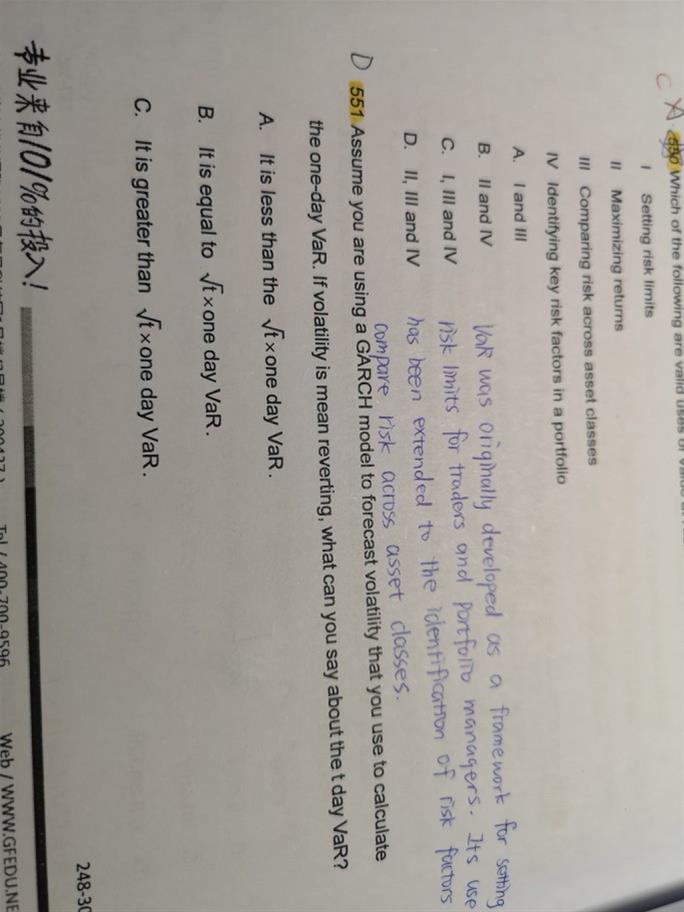 C
550 Which of the following are valid uses of value at
I Setting risk limits
II Maximizing returns
III Comparing risk across asset classes
IV Identifying key risk factors in a portfolio
A. I and III
B. II and IV
C. I, III and IV
D. II, III and IV
VaR was originally developed as a framework for setting
risk limits for traders and portfolio managers. Its use
has been extended to the identification of risk factors
compare risk across asset classes.
D 551 Assume you are using a GARCH model to forecast volatility that you use to calculate
the one-day VaR. If volatility is mean reverting, what can you say about the t day VaR?
A. It is less than the √t×one day VaR.
B. It is equal to √t×one day VaR.
C. It is greater than √t×one day VaR.
248-30
专业来自101%的投入!
Tel / 400-700-9596 Web / WWW.GFEDU.NE